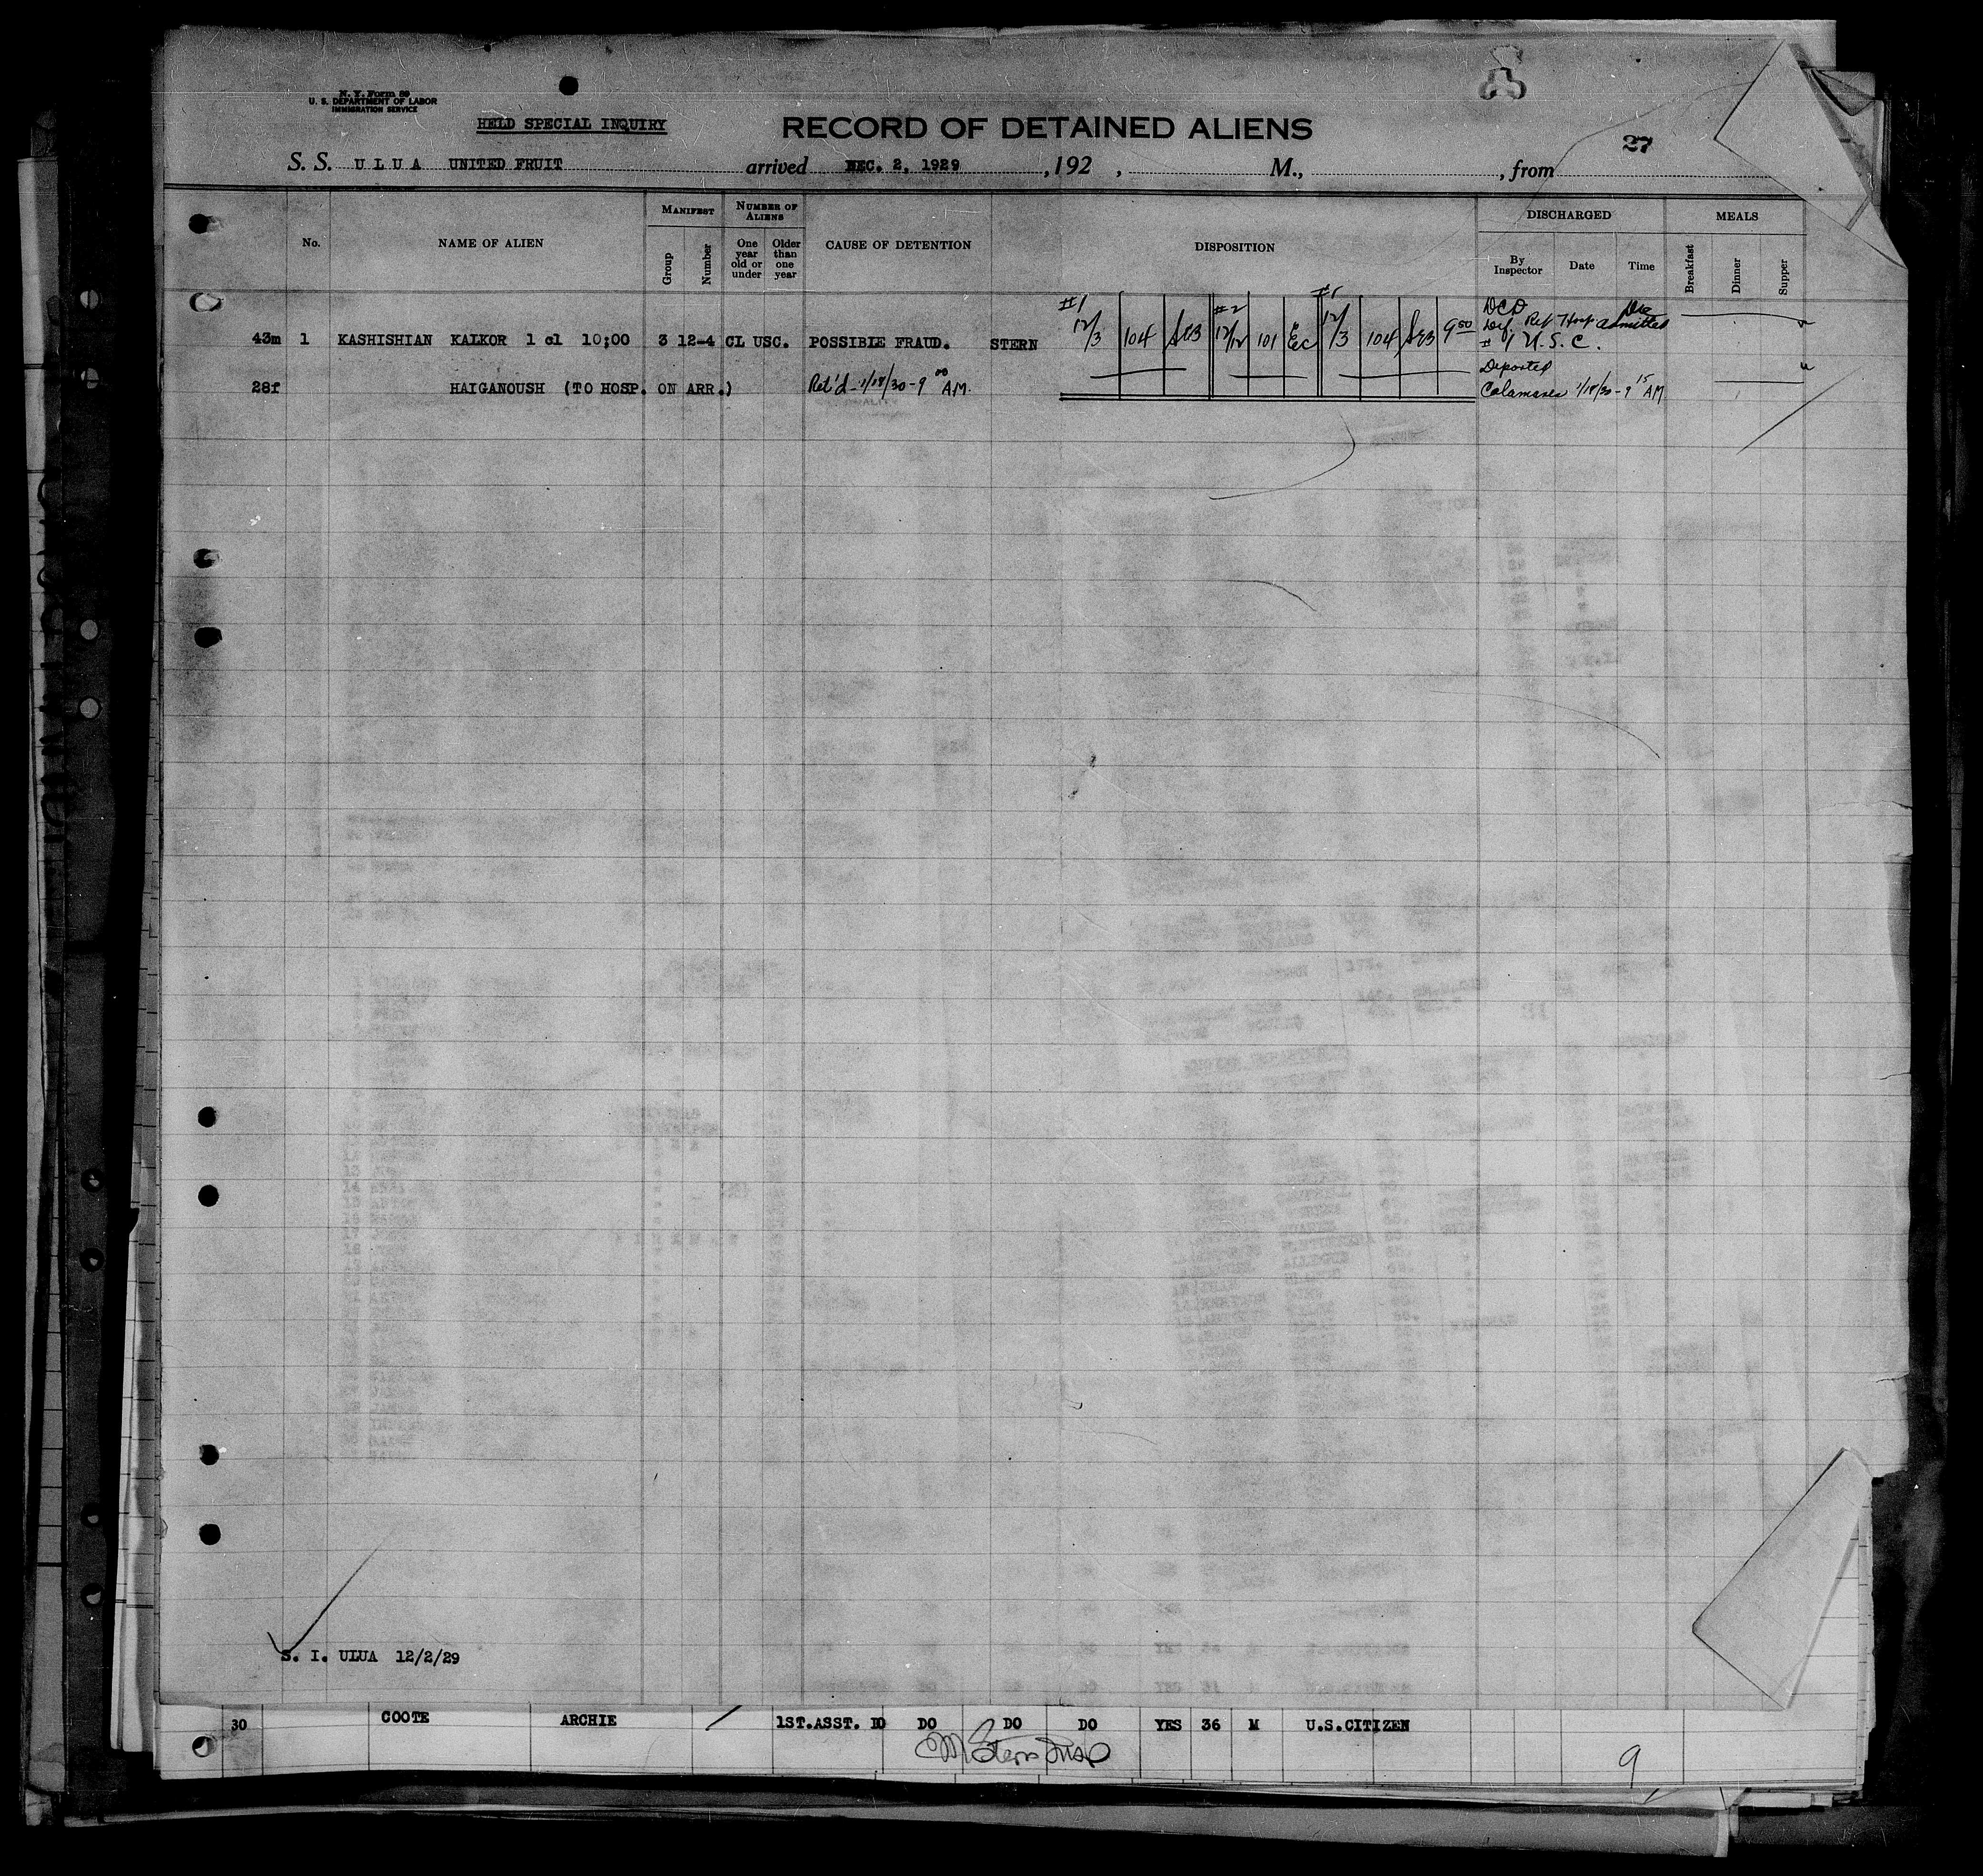 N. Y. Form 89
U. S. DEPARTMENT OF LABOR
IMMIGRATION SERVICE
HELD SPECIAL INQUIRY
RECORD OF DETAINED ALIENS
27
S. S. U L U A UNITED FRUIT arrived DEC. 2, 1929 , 192 , M., , from
No. NAME OF ALIEN MANIFEST Group Number NUMBER OF ALIENS One year old or under Older than one year CAUSE OF DETENTION DISPOSITION DISCHARGED By Inspector Date Time MEALS Breakfast Dinner Supper
#1 #2 #1 DCD
43m 1 KASHISHIAN KALKOR 1 cl 10;00 3 12-4 CL USC. POSSIBLE FRAUD. STERN 12/3 104 12/12 101 12/3 104 9 00 Def. Hosp admitted
#1 U.S.C.
Deported
28f HAIGANOUSH (TO HOSP. ON ARR.) Ret'd - 1/18/30 - 9 00 AM. Calamares 1/18/30 - 9 15 AM
S. I. ULUA 12/2/29
30 COOTE ARCHIE / 1ST.ASST. DO DO DO DO YES 36 M U.S.CITIZEN
M Stern
9